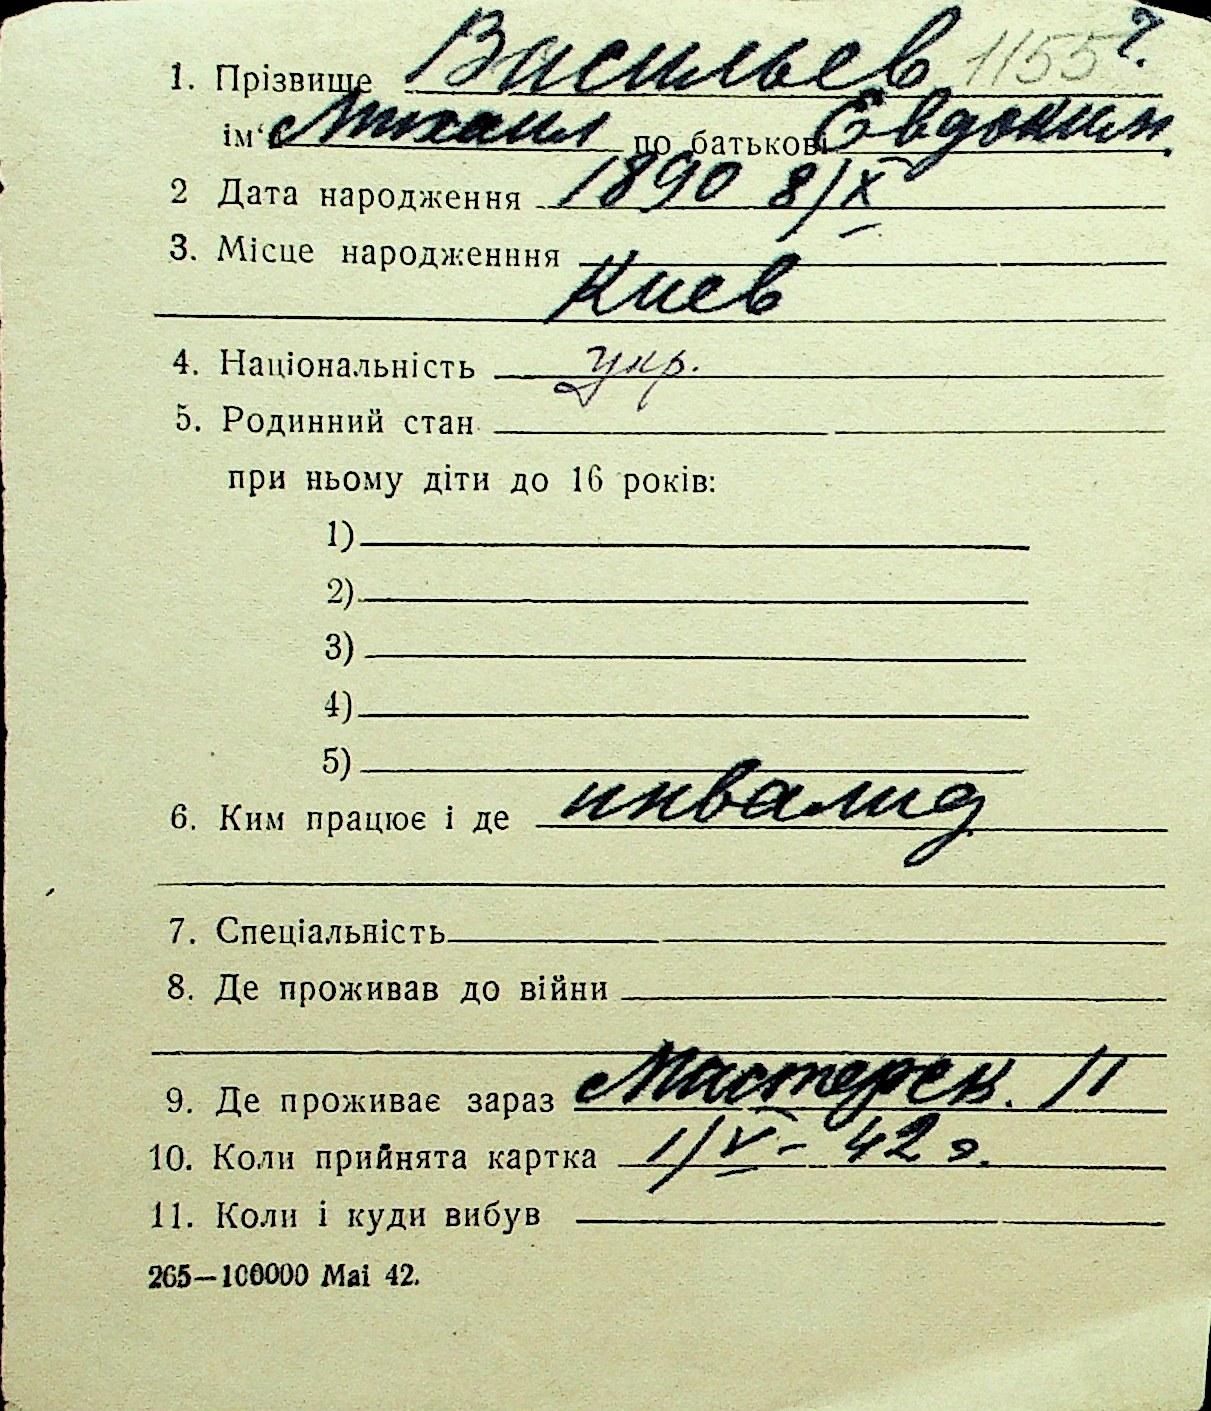 1. Прізвище Васильев 1155 ч.
ім‘я Михаил по батькові Евдоким.
2 Дата народження 1890 8/X
3. Місце народженння
Киев
4. Національність укр.
5. Родинний стан
при ньому діти до 16 років:
1)
2)
3)
4)
5)
6. Ким працює і де инвалид
7. Спеціальність
8. Де проживав до війни
9. Де проживає зараз Мастерск. 11
10. Коли прийнята картка 1/V - 42 г.
11. Коли і куди вибув
265—100000 Mai 42.